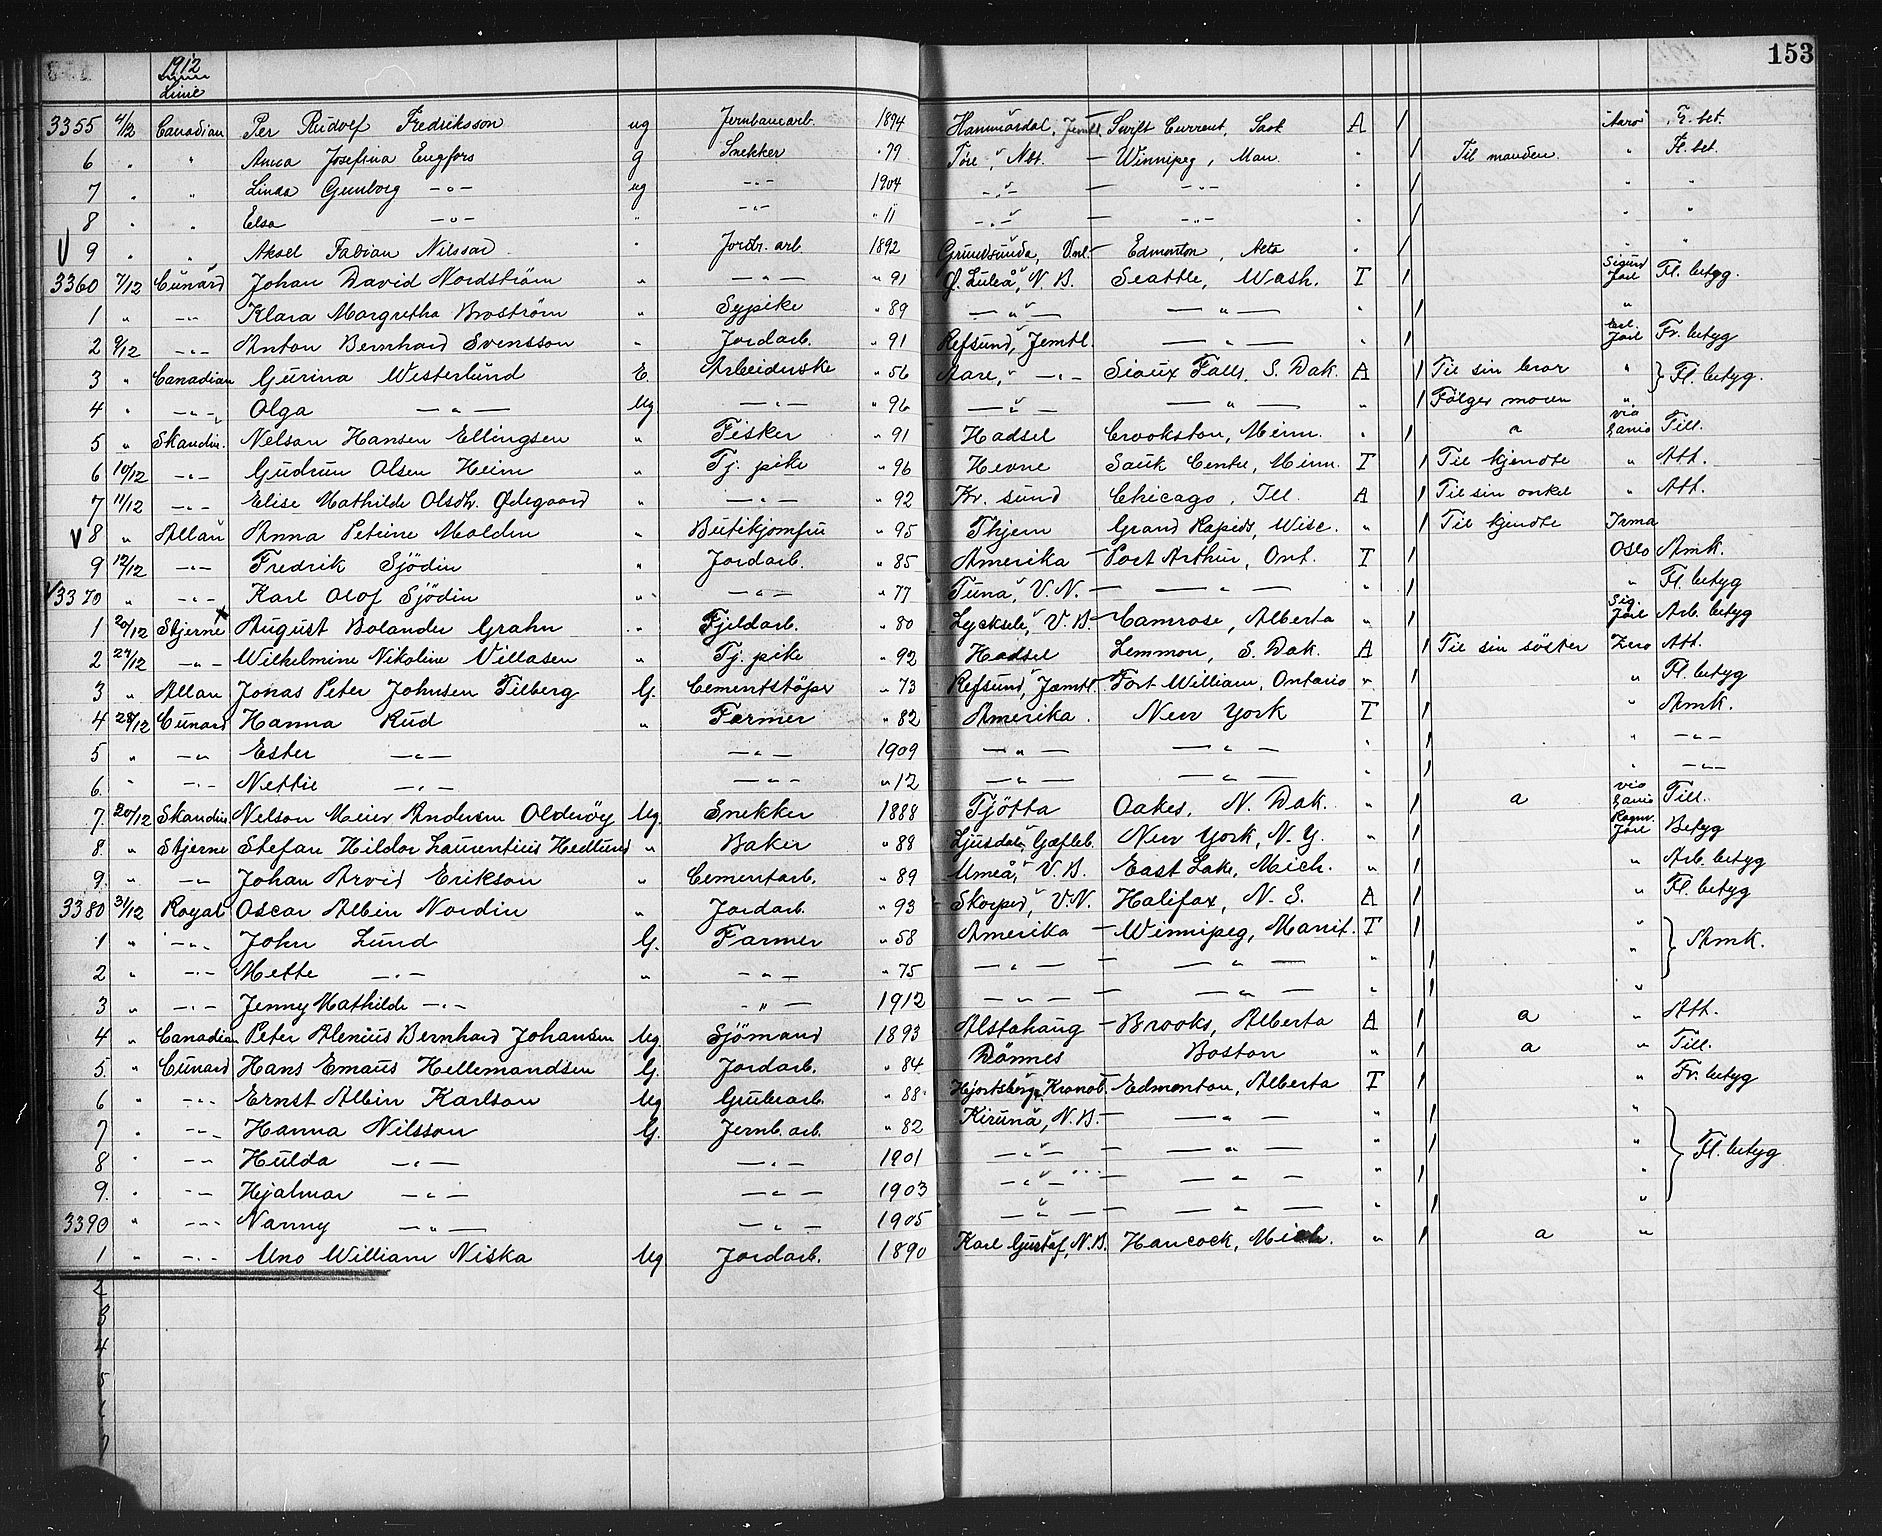 153
1912
Linie
3355 4/12 Canadian Per Rudolf Fredriksson ug Jernbanearb. 1894 Hammardal, Jemtl. — Swift Current, Sask A / "Aaro" Fr. bet.
6 " " Anna Josefina Engfors g Snekker " 79 Töre, Nbt. — Winnipeg, Man. " / Til manden. " Fl. bet.
7 " " Linda Gunborg —"— ug —"— 1904 —"— — —"— " / " "
8 " " Elsa —"— " —"— " 11 —"— — —"— " / " "
V 9 " " Aksel Fabian Nilssar " Jordbr. arb 1892 Grundsunda, Vnl — Edmonton, Alta " / " "
3360 7/12 Cunard Johan David Nordström " —"— " 91 Ø. Luleå, N. B. Seattle, Wash. T / Sigurd Jarl Fl. betyg.
1 " —"— Klara Margretha Broström " Sypike " 89 —"— —"— " / "
2 9/12 —"— Anton Bernhard Svensson " Jordarb. " 91 Refsund, Jemtl. —"— " / Erl. Jarl Fr. betyg
3 " Canadian Gurina Westerlund E. Arbeiderske " 56 Aare, —"— Sioux Falls, S. Dak. A / Til sin bror " } Fl. betyg.
4 " —"— Olga —"— Ug —"— " 96 —"— —"— " / Følger moren "
5 " Skandin. Nelson Hansen Ellingsen " Fisker " 91 Hadsel Crookston, Minn. " / a via Eanio Till.
6 10/12 —"— Gudrun Olsen Heim " Tj. pike " 96 Hevne Sauk Centre, Minn. T / Til kjendte " Att.
7 11/12 —"— Elise Mathilde Olsdtr. Ødegaard " —"— " 92 Kr. sund Chicago, Ill. A / Til sin onkel " Att.
V 8 " Allan Anna Petrine Molden " Butikjomfru " 95 Thjem Grand Rapids, Wisc. " / Til kjendte Irma
9 12/12 —"— Fredrik Sjödin " Jordarb. " 85 Amerika — Port Arthur, Ont. T / Oslo Amk.
V 3370 " —"— Karl Olof Sjödin " —"— " 77 Tuna, V. N. — —"— " / " Fl. betyg
1 20/12 Stjerne August Bolander Grahn " Fjeldarb. " 80 Lycksele, V. B. — Camrose, Alberta " / Sig. Jarl Arb. betyg
2 24/12 —"— Wilhelmine Nikoline Villasen " Tj. pike " 92 Hadsel Lemmon, S. Dak. A / Til sin söster Zero Att.
3 " Allan Jonas Peter Johnsen Tilberg G. Cementstöper " 73 Refsund, Jæmtl. — Fort William, Ontario " / " Fl. betyg
4 28/12 Cunard Hanna Rud " Farmer " 82 Amerika. New York T / " Amk.
5 " —"— Ester —"— —"— 1909 —"— —"— " / " —"—
6 " —"— Nettie —"— —"— " 12 —"— —"— " / " —"—
7 20/12 Skandin Nelson Meier Andersen Olderöy Ug. Snekker 1888 Tjötta Oakes, N. Dak. " / a via Eanio Till.
8 " Stjerne Stefan Hildor Laurentius Hedlund " Baker " 88 Ljusdal, Gæfleb. New York, N. Y. " / Ragnv. Jarl Betyg
9. " —"— Johan Arvid Erikson " Cementarb. " 89 Umeå, V. B. East Lake, Mich. " / " Arb. betyg
3380 31/12 Royal Oscar Albin Nordin " Jordarb. " 93 Skorped, V. N. Halifax, N. S. A / " Fl. betyg
1 " —"— John Lund G. Farmer " 58 Amerika — Winnipeg, Manit. T / " } Amk.
2 " —"— Mette —"— " —"— " 75 —"— — —"— " / "
3 " —"— Jenny Mathilde —"— —"— 1912 —"— —"— " / "
4 " Canadian Peter Alenius Bernhard Johansen Ug Sjömand 1893 Alstahaug — Brooks, Alberta A / a " Att.
5 " Cunard Hans Emaus Hellemandsen G. Jordarb. " 84 Dönnes Boston " / a " Till.
6 " —"— Ernst Albin Karlson Ug Grubearb. " 88 Hjortsberga, Kronob. — Edmonton, Alberta T / " Fr. betyg
7 " —"— Hanna Nilsson G. Jernb. arb. " 82 Kiruna, N. B. — —"— " / "
8 " —"— Hulda —"— —"— 1901 —"— — —"— " / " } Fl. betyg
9. " —"— Hjalmar —"— —"— 1903 —"— —"— " / "
3390 " —"— Nanny —"— —"— 1905 —"— —"— " / "
1 " —"— Uno William Niska Ug Jordarb. 1890 Karl Gustaf, N. B. Hancock, Mich. " / a "
2
3
4
5